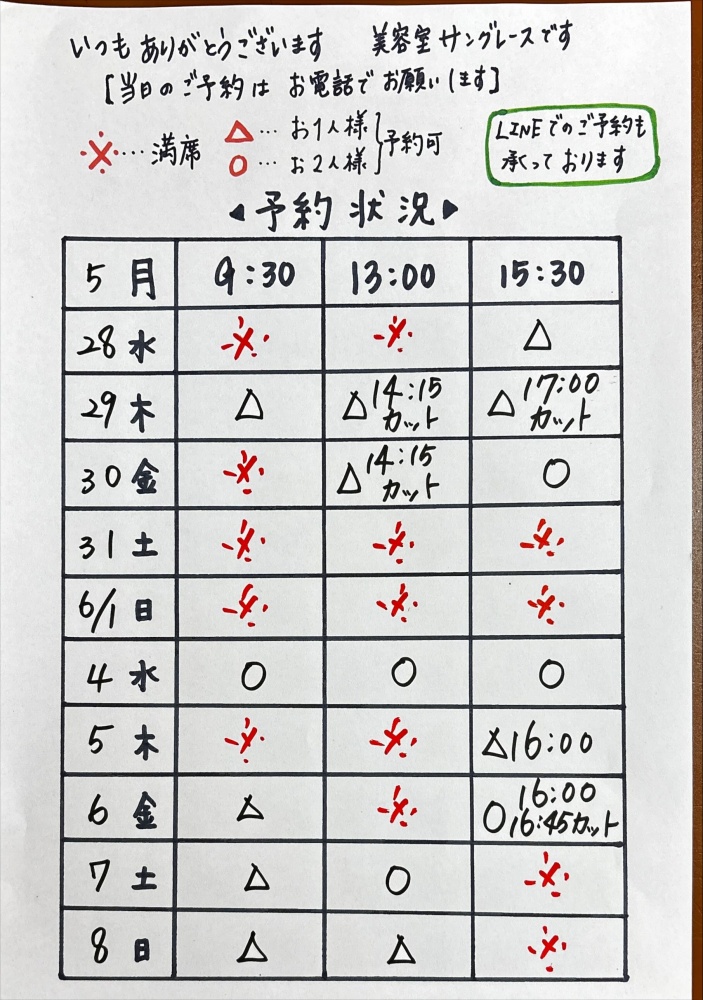 いつもありがとうございます 美容室サングレースです
[当日のご予約は お電話でお願いします]
※…満席
△…お1人様
○…お2人様
予約可
LINEでのご予約も
承っております
◀予約状況▶
5月 9:30 13:00 15:30
28 水 ※ ※ △
29 木 △ △14:15カット △17:00カット
30 金 ※ △14:15カット ○
31 土 ※ ※ ※
6/1 日 ※ ※ ※
4 水 ○ ○ ○
5 木 ※ ※ △16:00
6 金 △ ※ ○16:00 16:45カット
7 土 △ ○ ※
8 日 △ △ ※